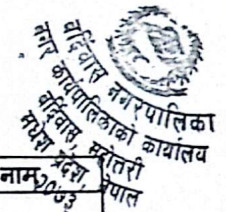 बर्दिवास नगरपालिका
नगर कार्यपालिकाको कार्यालय
बर्दिवास, महोत्तरी
मधेश प्रदेश, नेपाल
२०७३
नाम